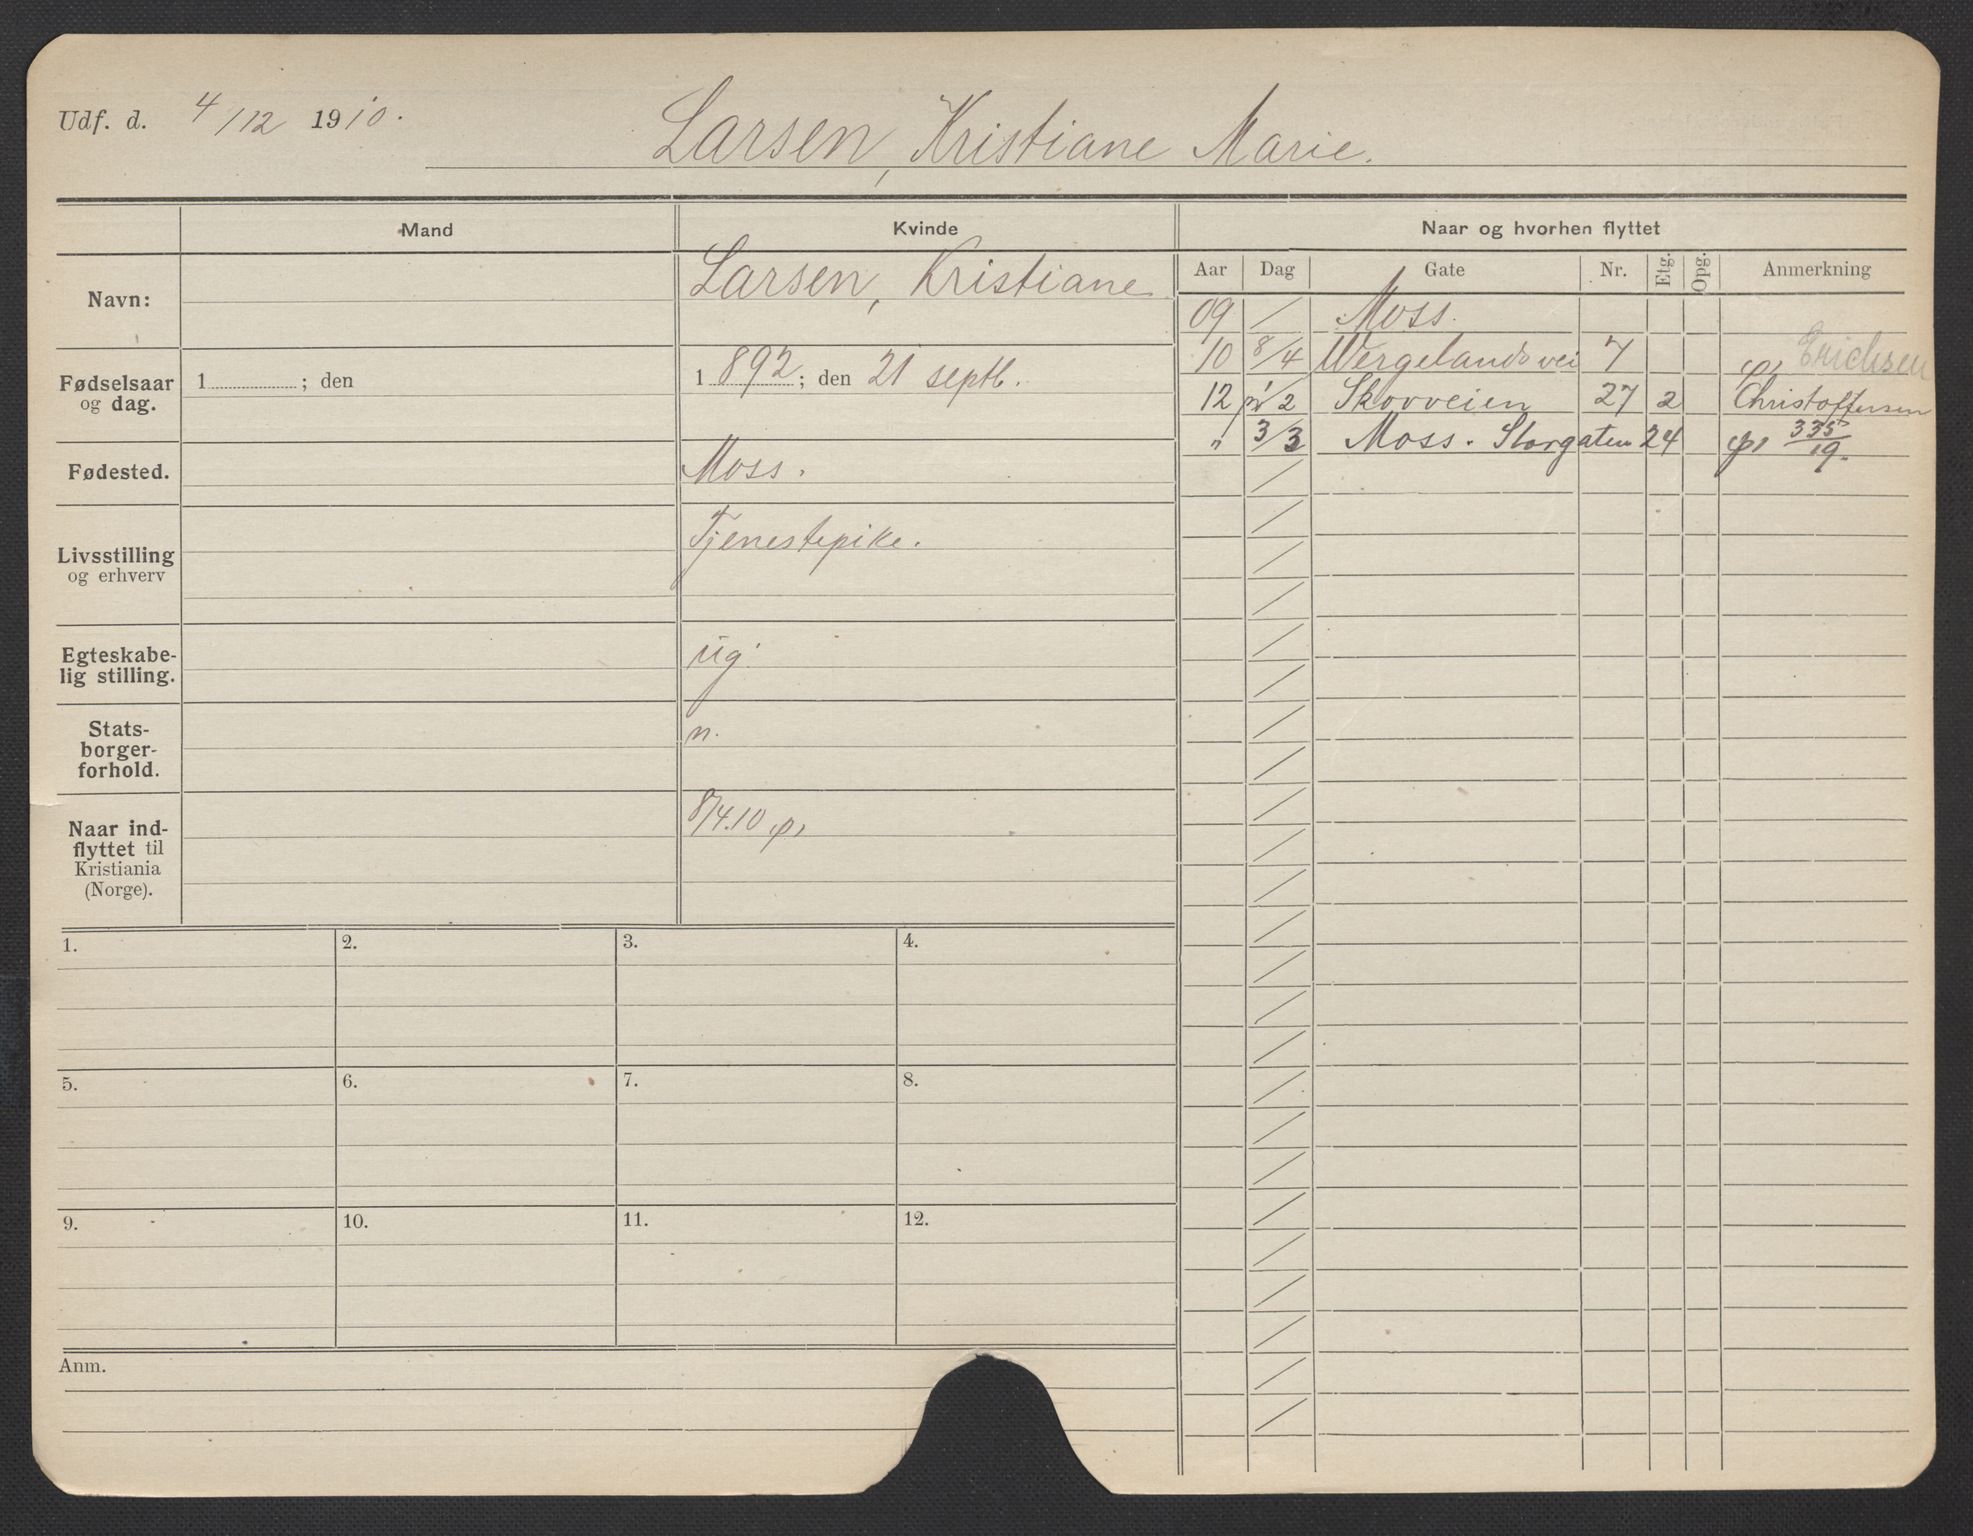 Udf. d. 4/12 1910.
Larsen, Kristiane Marie.
Mand
Kvinde
Naar og hvorhen flyttet
Navn:
Larsen, Kristiane
Aar Dag Gate Nr. Etg. Opg. Anmerkning
09 / Moss.
10 8/4 Wergelandsvei 7 Erichsen
12 1/2 Skovveien 27 2 Christoffersen
" 3/3 Moss. Storgaten 24 335/19.
Fødselsaar
og dag.
1 ; den
1892; den 21 septb.
Fødested.
Moss.
Livsstilling
og erhverv
Tjenestepike.
Egteskabe-
lig stilling.
ug.
Stats-
borger-
forhold.
n.
Naar ind-
flyttet til
Kristiania
(Norge).
8/4.10
1. 2. 3. 4.
5. 6. 7. 8.
9. 10. 11. 12.
Anm.